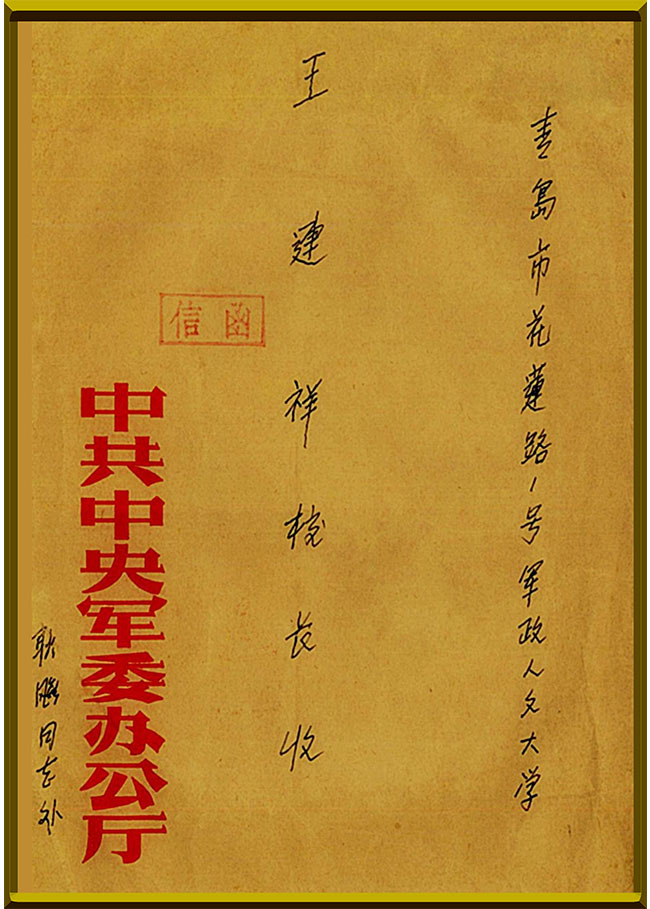 青岛市花莲路1号军政人文大学
王建祥校长收
信函
中共中央军委办公厅
耿飚同志处